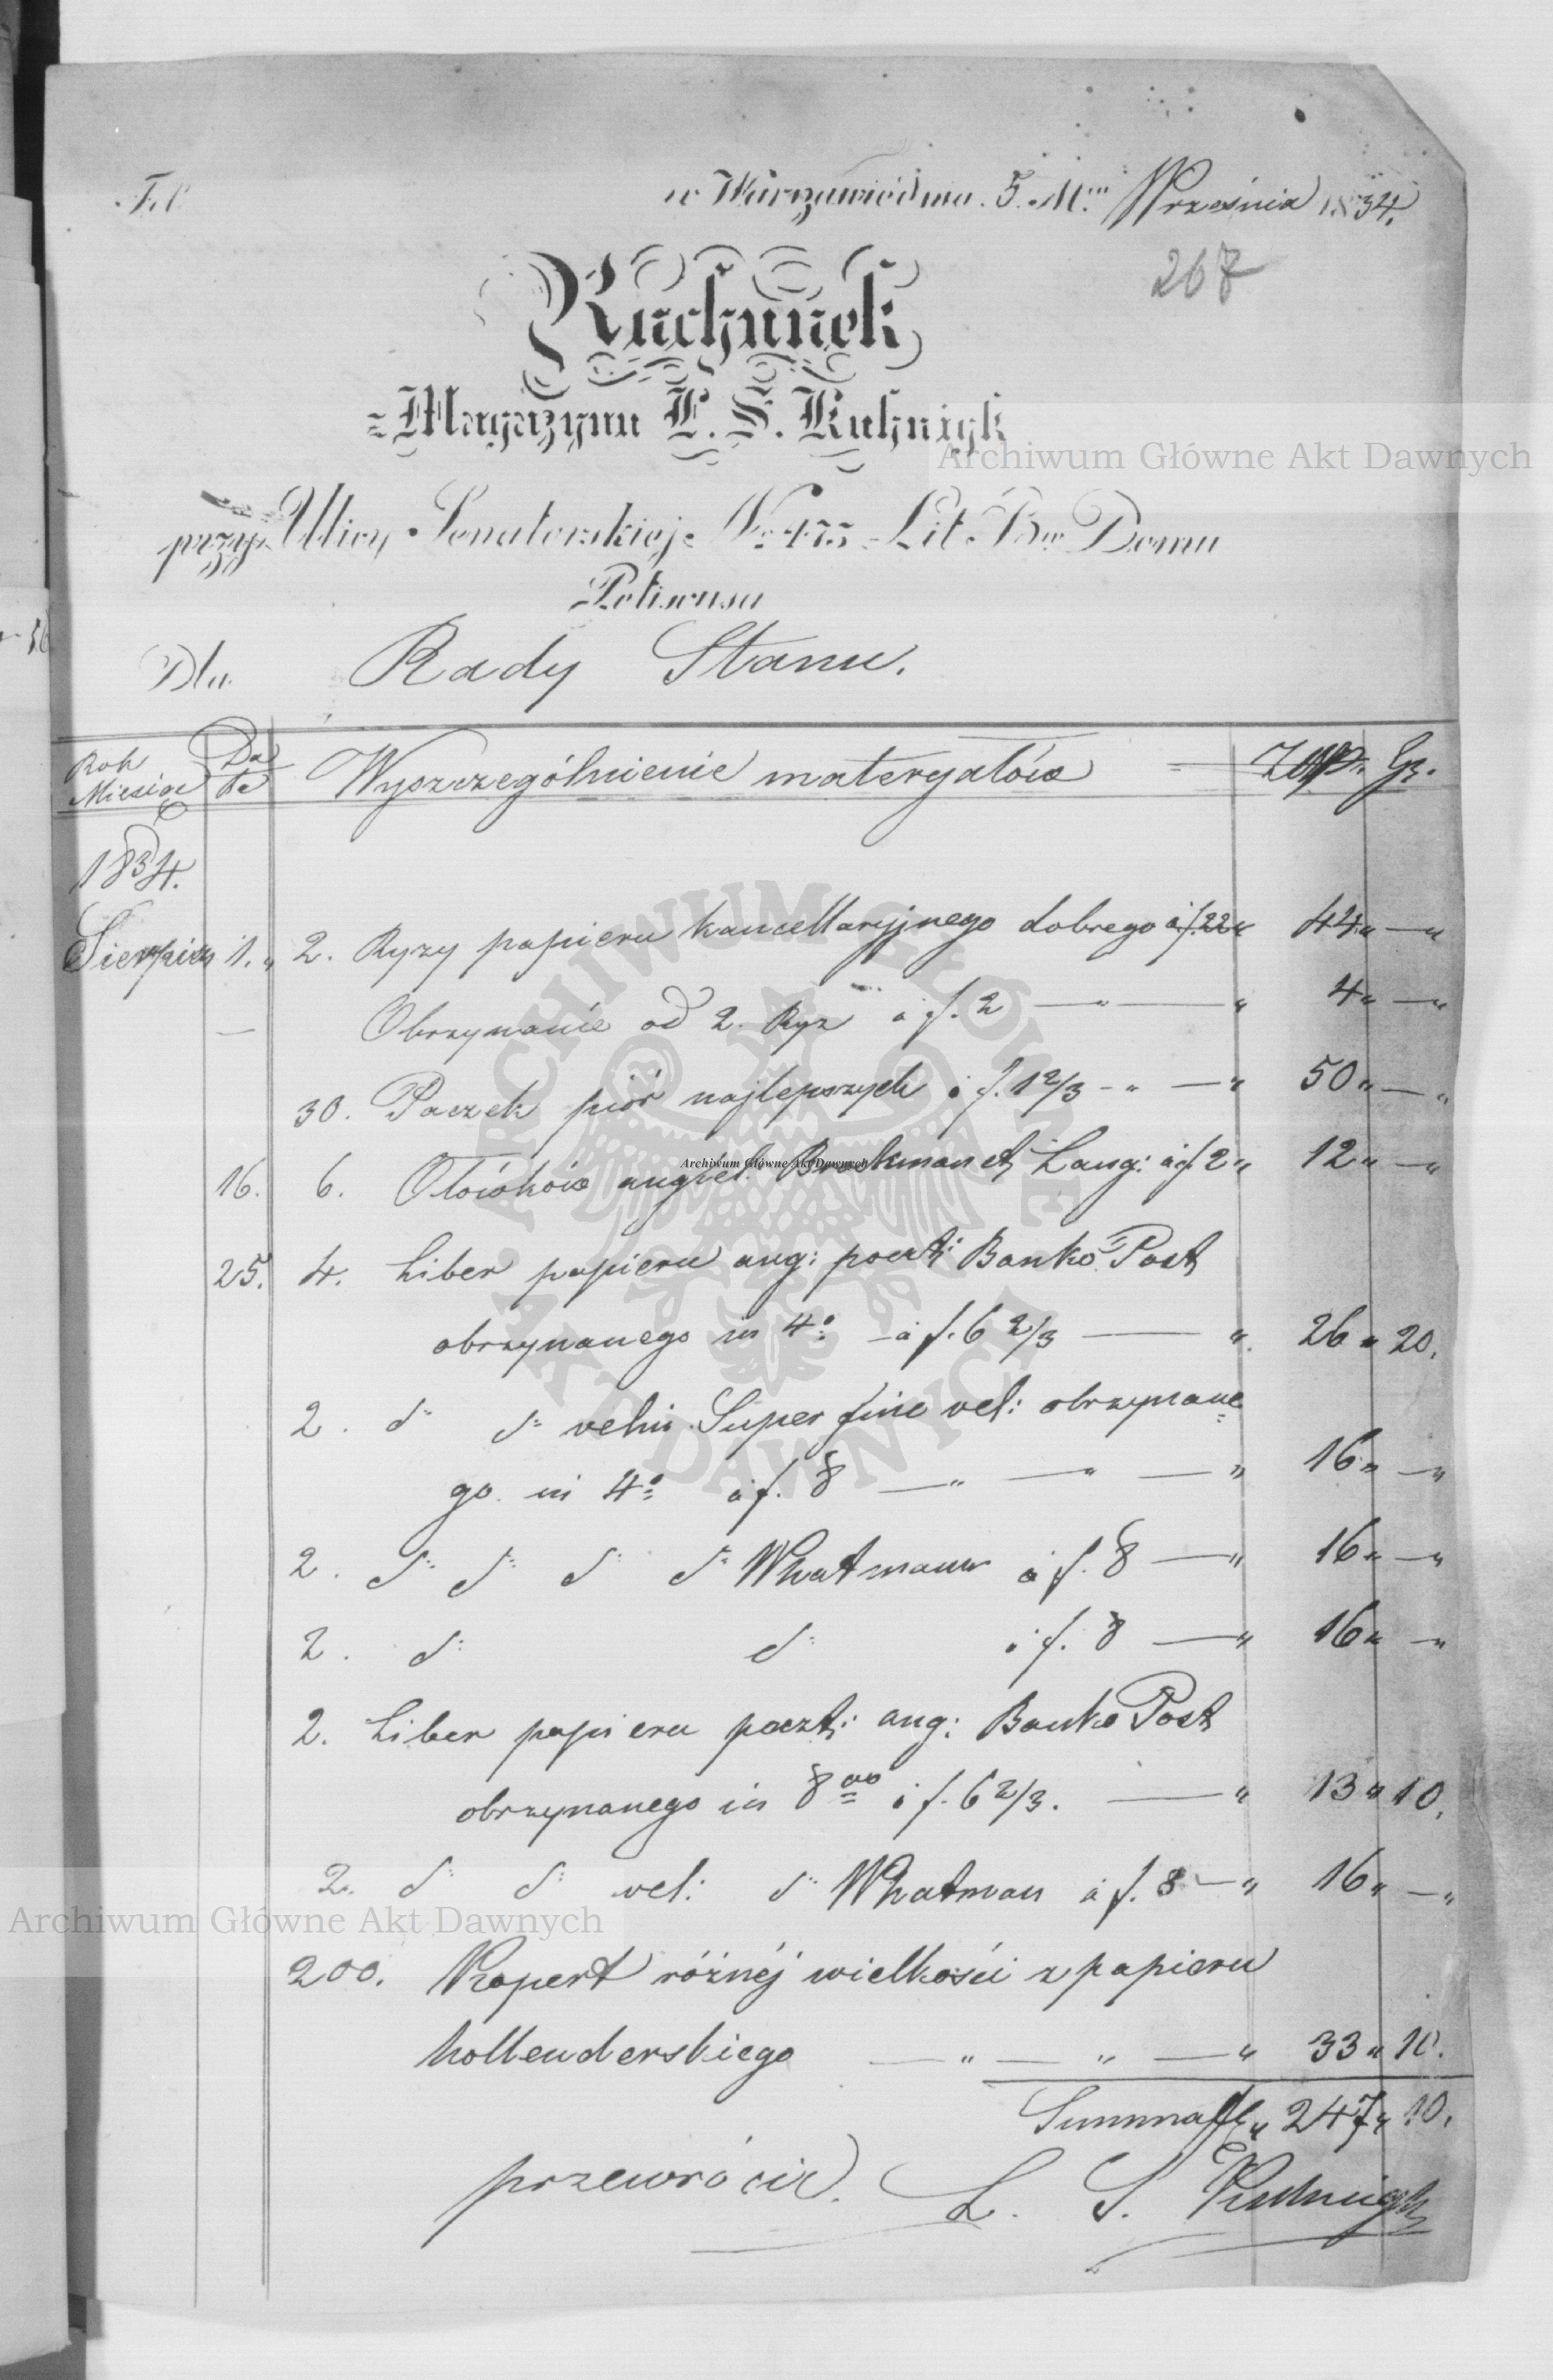 Fol.
w Warszawie dnia 5. M.ca Września 1834.
267
Rachunek
z Magazynu L. S. Kuhnigk
przy Ulicy Senatorskiej No 475 Lit. B w Domu
Petiscusa
Dla Rady Stanu.
Rok Miesiąc Data Wyszczególnienie materyałów Złp. Gr.
1834.
Sierpień 1. „ 2. Ryzy papieru kancellaryjnego dobrego à f. 22 „ 44 „ — „
— Obrzynanie od 2. Ryz à f. 2 — „ — „ 4 „ — „
30. Paczek piór najlepszych à f. 1 2/3 - „ — „ 50 „ — „
16. 6. Ołówków angiel. Brockman et Lang: à f. 2 „ 12 „ — „
25. 4. Liber papieru ang: poczt: Banko Post
obrzynanego in 4o — à f. 6 2/3 — „ 26 „ 20.
2. do do velin Super fine vel: obrzynane
go in 4o à f. 8 — „ — „ — „ 16 „ — „
2. do do do do Whatmann à f. 8 — „ 16 „ — „
2. do do à f. 8 — „ 16 „ — „
2. Liber papieru poczt: ang: Banko Post
obrzynanego in 8vo à f. 6 2/3. — „ 13 „ 10.
2. do do vel: do Whatman à f. 8 — „ 16 „ — „
200. Kopert różnéj wielkości z papieru
hollenderskiego — „ — „ — „ 33 „ 10.
Summa fl „ 247 „ 10.
przewrócić. L. S. Kuhnigk
Archiwum Główne Akt Dawnych
Archiwum Główne Akt Dawnych
Archiwum Główne Akt Dawnych
ARCHIWUM GŁÓWNE
AKT DAWNYCH